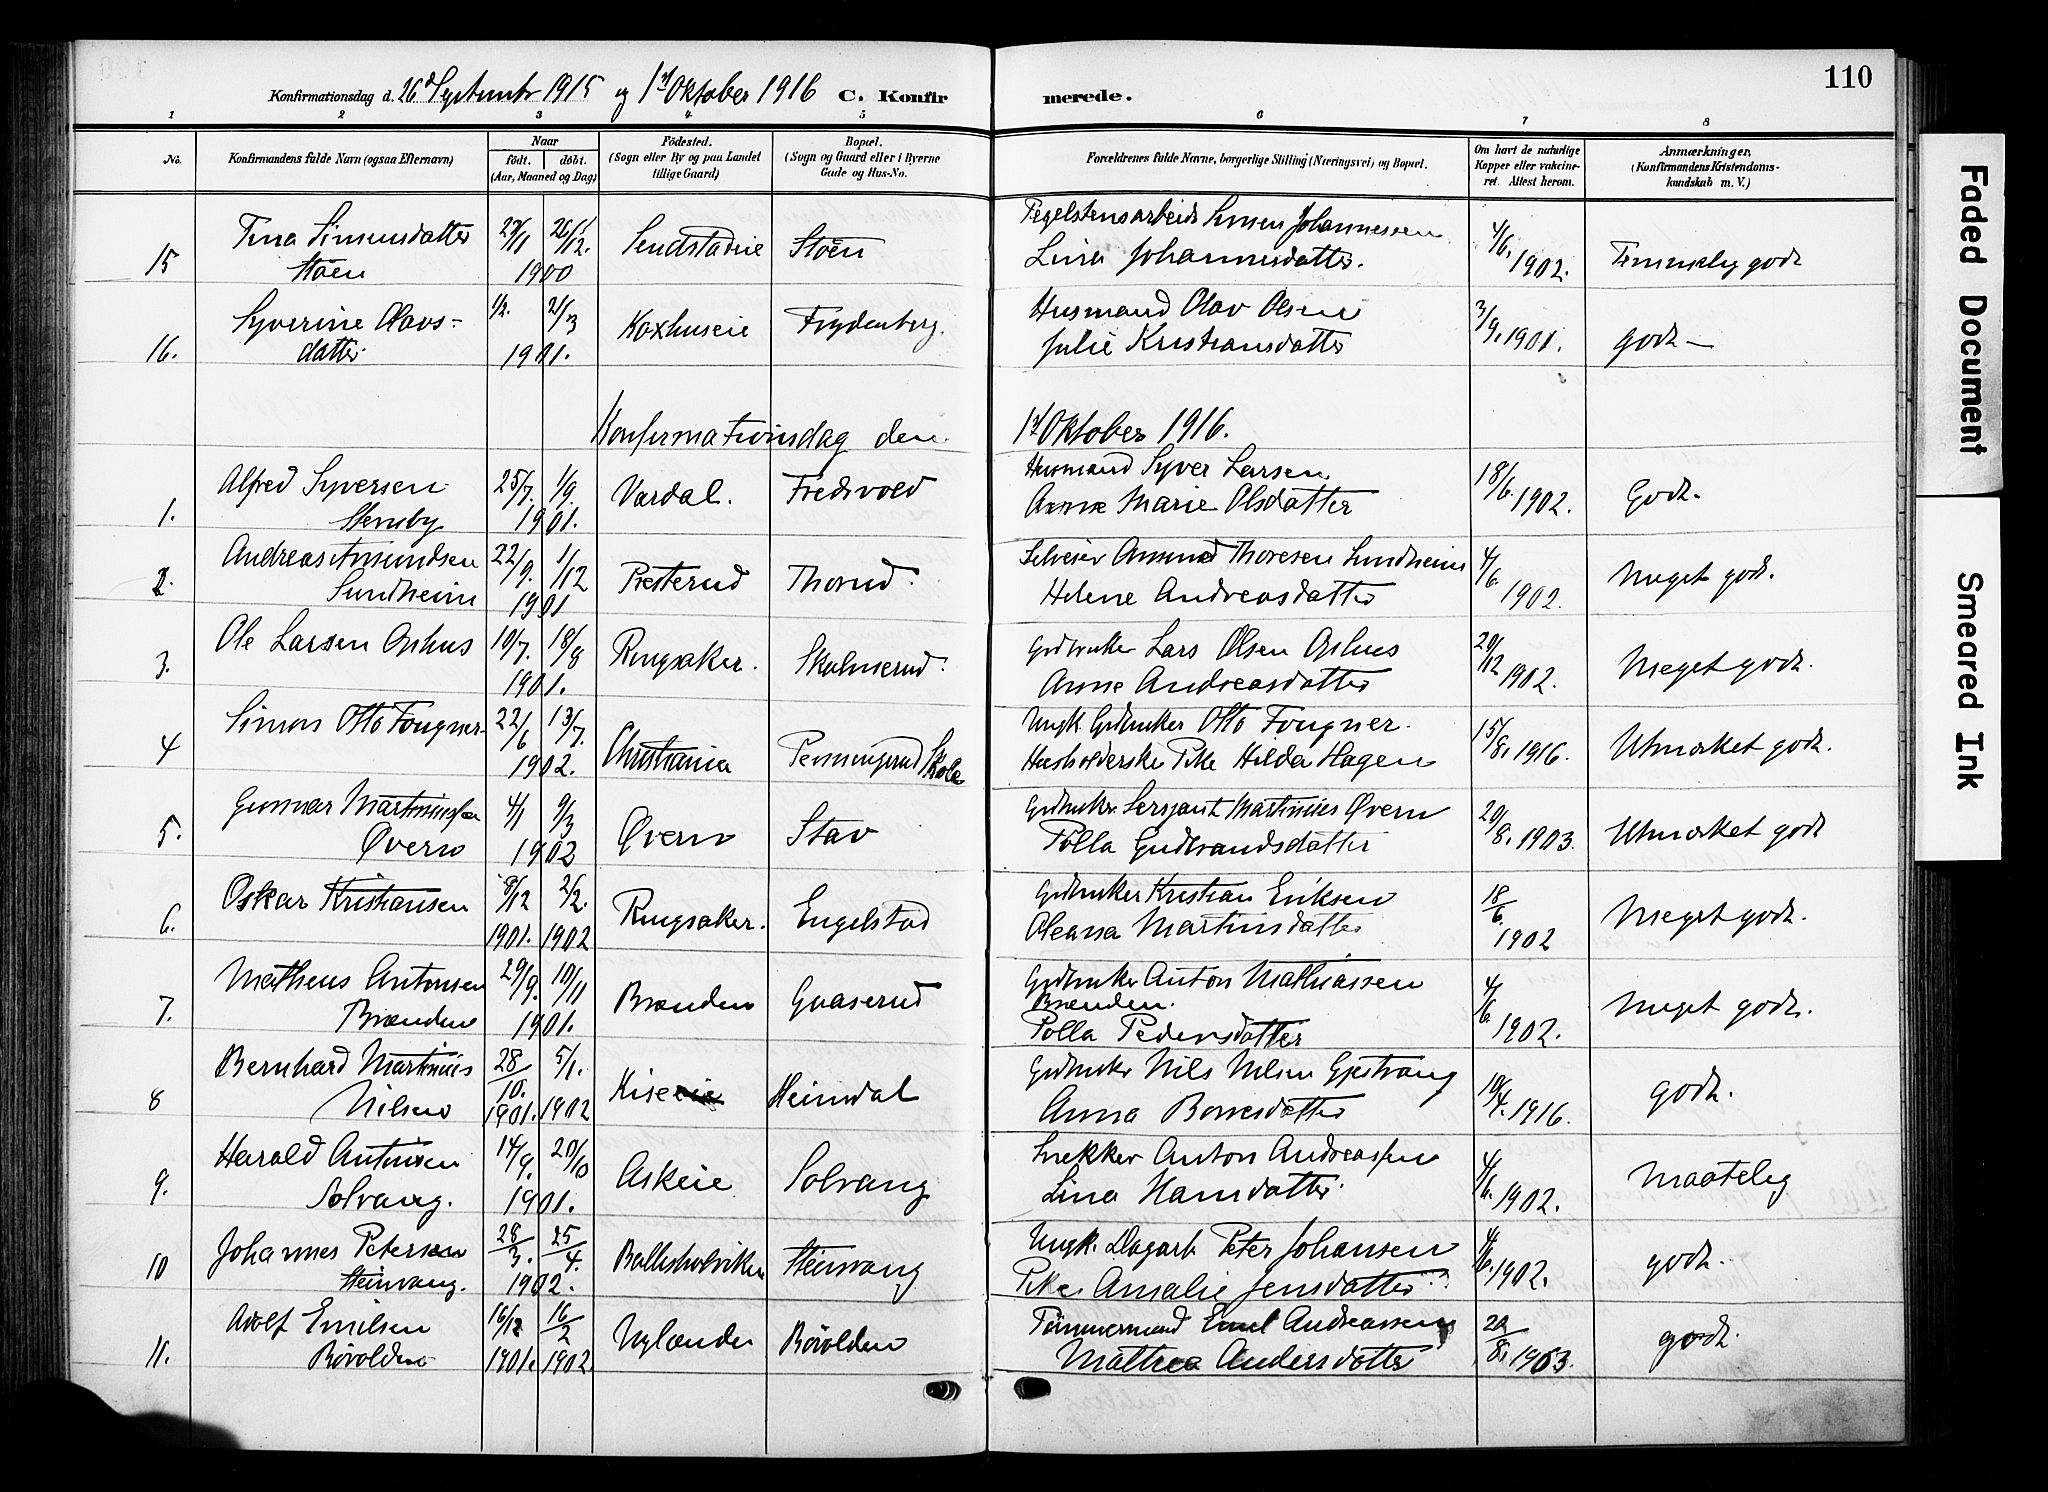 110
Konfirmationsdag d. 26de September 1915 og 1st Oktober 1916 C. Konfirmerede.
1 2 3 4 5 6 7 8
No. Konfirmandens fulde Navn (ogsaa Efternavn) Naar født. døbt. (Aar, Maaned og Dag) Fødested. (Sogn eller By og paa Landet tillige Gaard) Bopæl. (Sogn og Gaard eller i Byerne Gade og Hus-No. Forældrenes fulde Navne, borgerlige Stilling (Næringsvei) og Bopæl. Om havt de naturlige Kopper eller vakcineret. Attest herom. Anmærkninger, (Konfirmandens Kristendomskundskab m. V.)
15 Tina Simensdatter 27/11 26/12. Sendstadeie Støen Tegelstensarbeid. Simen Johannessen 4/6.
Støen 1900 Lina Johannesdatter. 1902. Temmelig godt
16. Syverine Olavs- 1/2. 21/3 Koxhuseie Frydenberg. Husmand Olav Olsen 3/9. 1901. godt
datter 1901. Julie Kristiansdatter
Konfirmationsdag den 1st Oktober 1916.
1. Alfred Syversen 25/7. 1/9. Vardal. Fredsvold Husmand Syver Larsen 18/6. 1902. Godt.
Stensby 1901. Anne Marie Olsdatter
2. Andreas Amundsen 22/9. 1/12 Presterud Thorud. Selveier Amund Thoresen Sundheim 4/6. Meget godt.
Sundheim 1901 Helene Andreasdatter 1902.
3. Ole Larsen Ophus 10/7. 18/8 Ringsaker. Skolmerud. Grdbruker Lars Olsen Ophus 20/12 1902. Meget godt.
1901. Anne Andreasdatter
4 Simon Otto Fougner 22/6 13/7. Christiania Penningrud Skole Ungk. Grdbruker Otto Fougner. 15/8. 1916. Utmærket godt.
1902. Husholderske Pike Hilda Hagen
5. Gunnar Martiniussen 4/1 9/3 Øvern Stav Grdbruker Sersjant Martinius Øvern 20/8. 1903. Utmærket godt
Øvern 1902 Polla Gudbrandsdatter
6. Oskar Kristiansen 8/12 2/2. Ringsaker. Engelstad Grdbruker Kristian Eriksen 18/6. Meget godt.
1901. 1902 Oleana Martinsdatter 1902
7. Matheus Antonsen 29/9. 10/11 Brænden Gvaserud Grdbruker Anton Mathiassen 4/6. Meget godt.
Brænden.
Brænden 1901. Polla Pedersdatter 1902.
8 Bernhard Martinius 28/10. 5/1. Kise Heimdal Grdbruker Nils Nilsen Gjestvang 10/4. 1916. godt.
Nilsen 1901. 1902 Anna Bonesdatter
9. Harald Antonsen 14/9. 20/10 Askeie Solvang Snekker Anton Andreassen 4/6. Maatelig
Solvang. 1901. Lina Hansdatter. 1902.
10 Johannes Petersen 28/3. 25/4. Ballisholviken Steinvang Ungk. Dagarb. Peter Johansen 4/6. 1902. godt.
Steinvang. 1902. Pike Amalie Jensdatter
11. Adolf Emilsen 16/12 16/2 Nylænder Børolden Tømmermand Emil Andreassen 20/8. 1903. godt.
Børolden 1901. 1902 Mathea Andersdatter
Faded Document
Smeared Ink